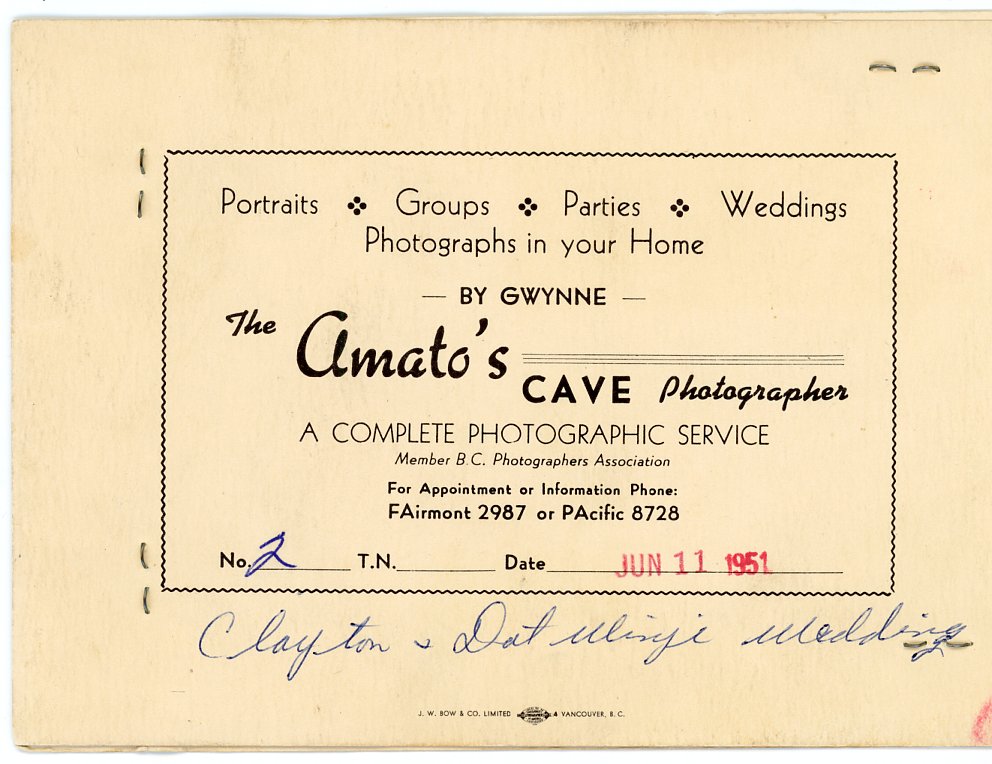 Portraits Groups Parties Weddings
Photographs in your Home
— BY GWYNNE —
The Amato's
CAVE Photographer
A COMPLETE PHOTOGRAPHIC SERVICE
Member B.C. Photographers Association
For Appointment or Information Phone:
FAirmont 2987 or PAcific 8728
No. 2 T.N. Date JUN 11 1951
Clayton & Dot Wedding
J. W. BOW & CO. LIMITED 4 VANCOUVER, B. C.